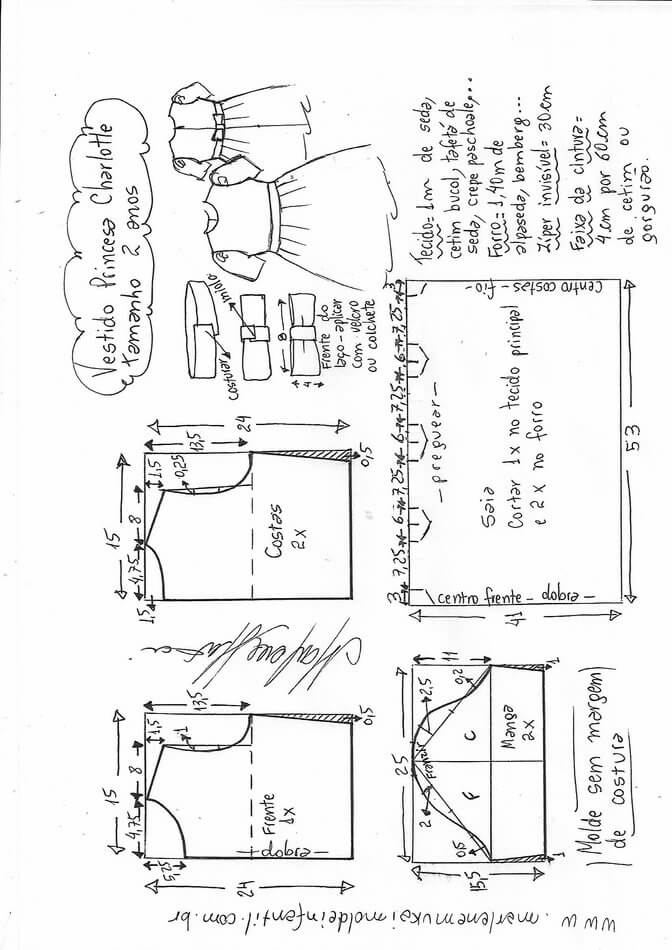 Vestido Princesa Charlotte
tamanho 2 anos
Tecido=1m de seda,
cetim bucol, tafetá de
seda, crepe paschoale,...
Forro=1,40m de
alpaseda, bemberg...
Zíper invisível=30cm
Faixa da cintura=
4cm por 60cm
de cetim ou
gorgurão.
costurar
miolo
8
4
Frente do
laço-aplicar
com velcro
ou colchete
15
4,75
8
1,5
1,5
0,25
13,5
24
0,5
Costas
2x
3 7,25 6 7,25 6 7,25 6 7,25 3
-preguear-
Centro costas-fio-
Saia
Cortar 1x no tecido principal
e 2x no forro
centro frente-dobra-
41
53
15
4,75
8
1,5
1
5,25
13,5
24
0,5
Frente
1x
dobra
25
11
2,5
0,2
franzir
2
0,5
C
F
Manga
2x
15,5
1
1
Molde sem margem
de costura
www.marlenemukaimoldeinfantil.com.br